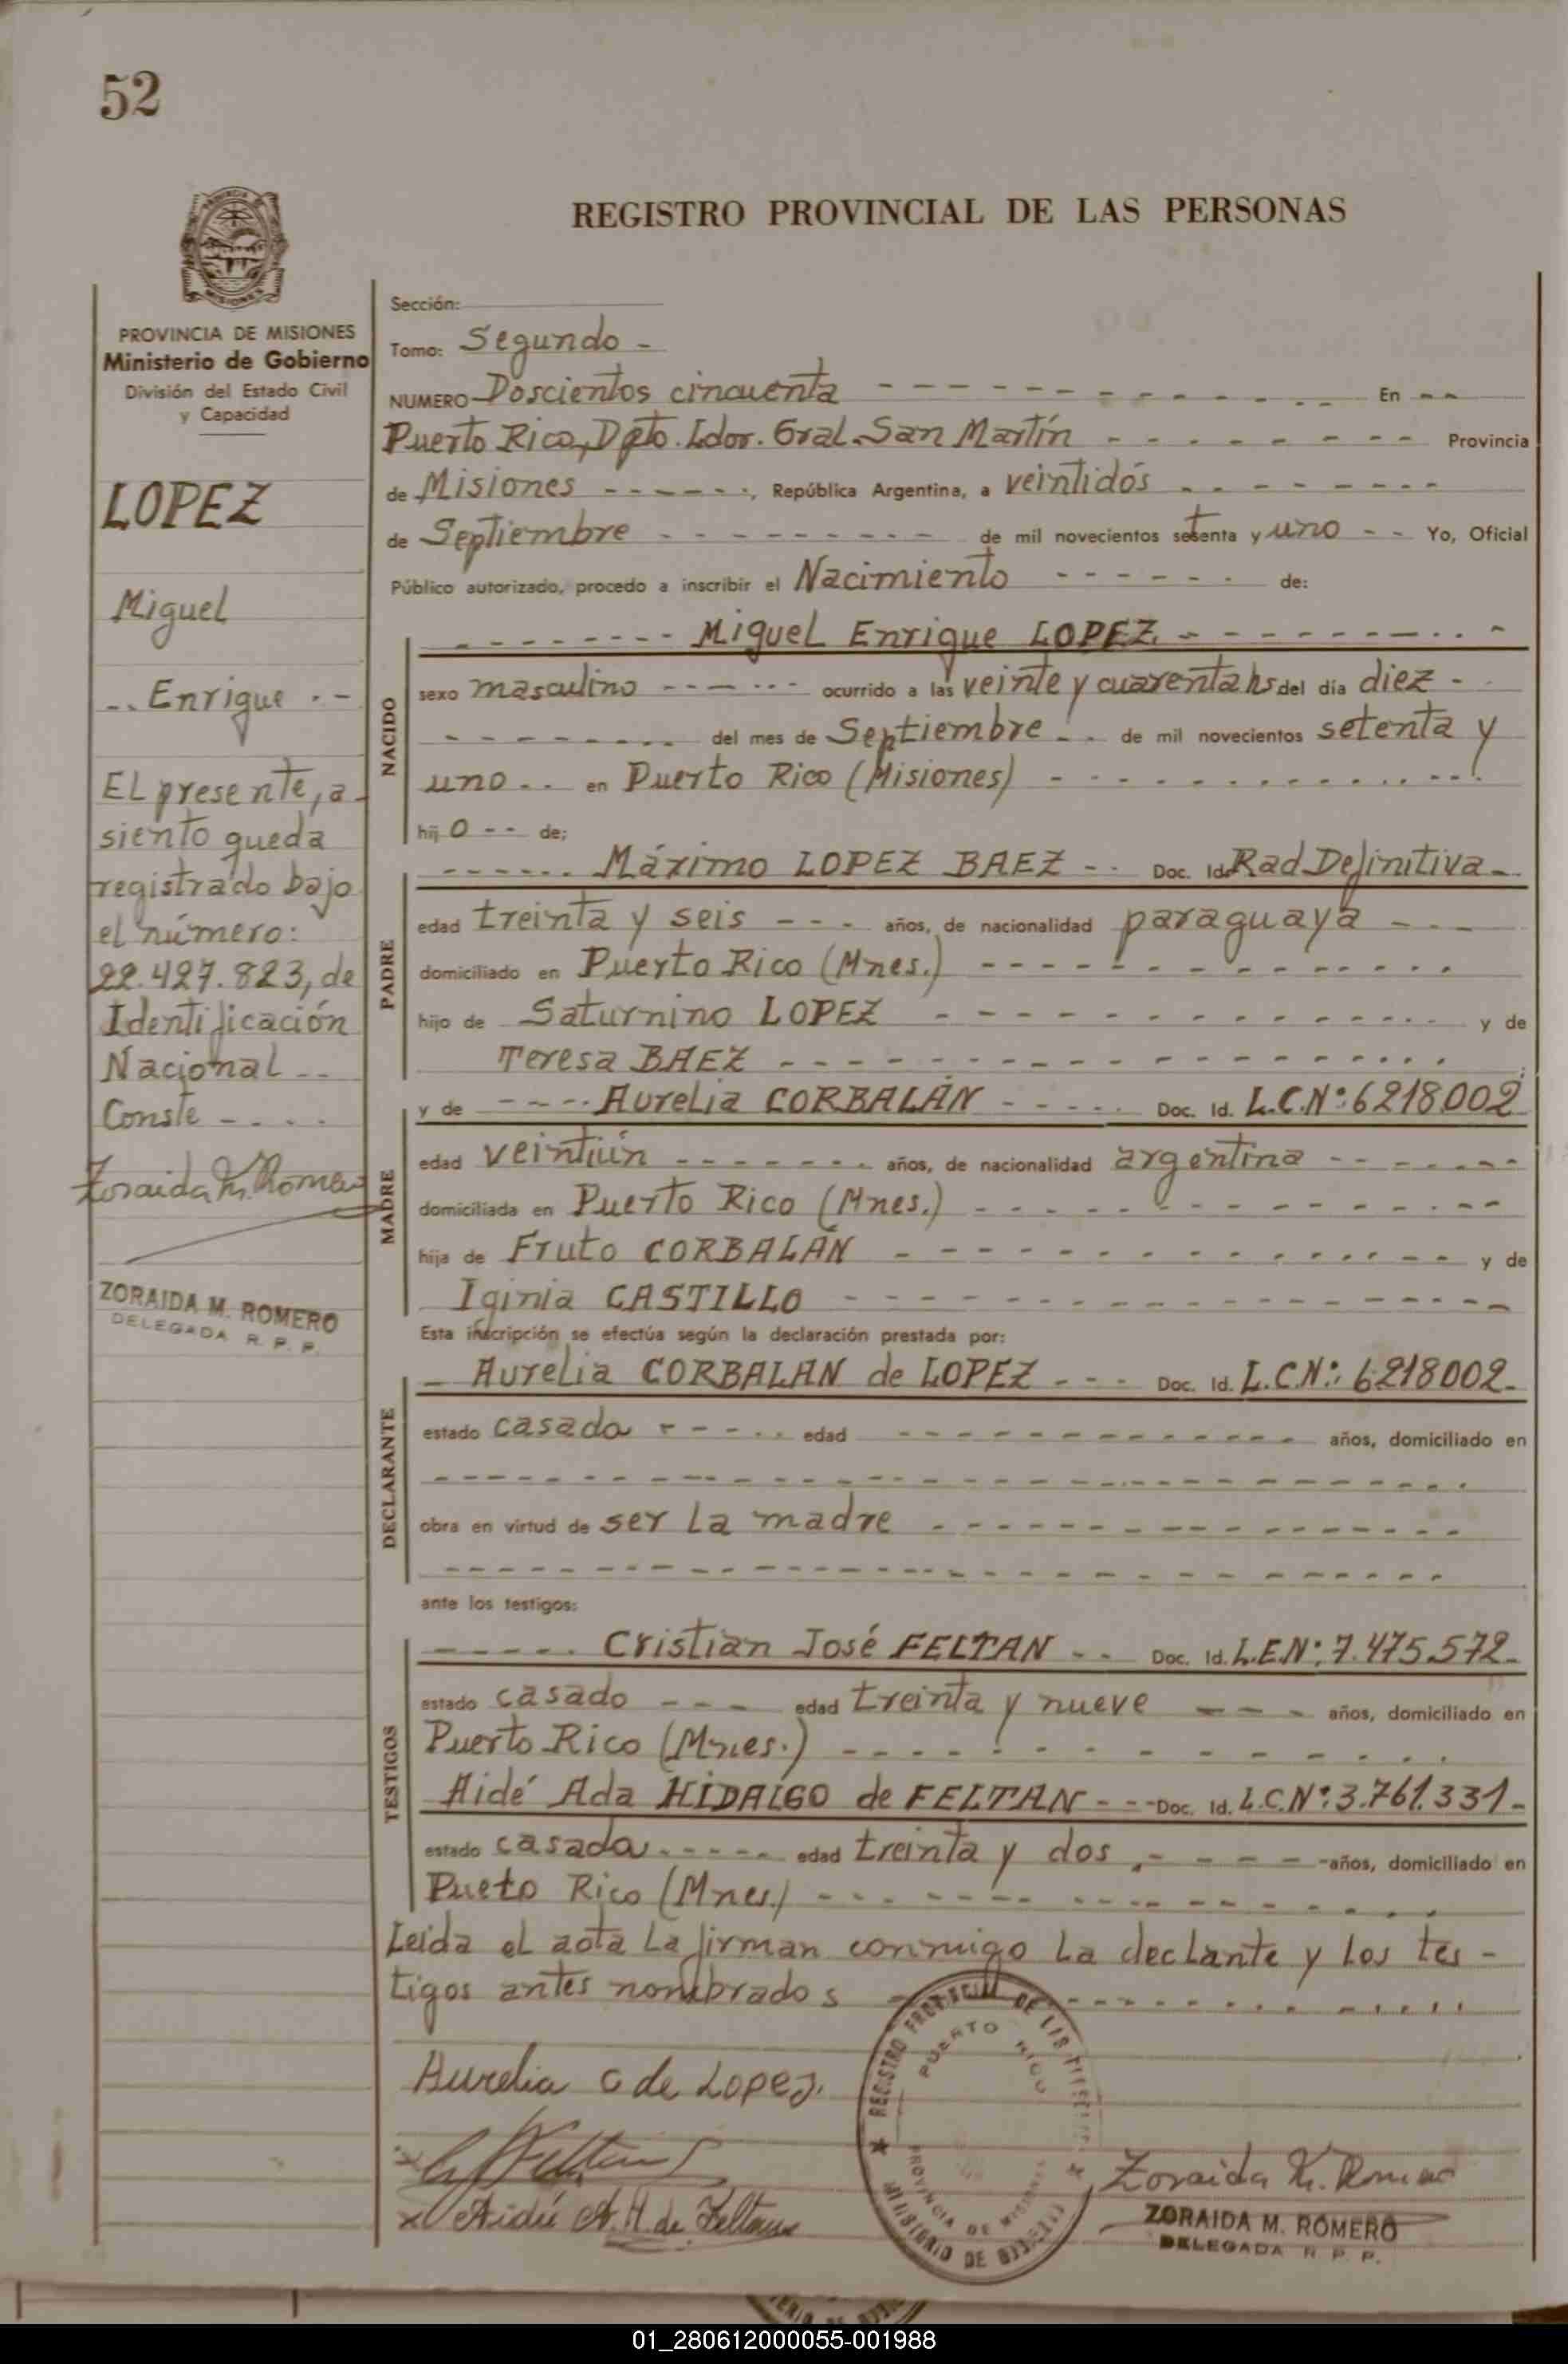 52
REGISTRO PROVINCIAL DE LAS PERSONAS
PROVINCIA DE MISIONES
Ministerio de Gobierno
División del Estado Civil
y Capacidad
LOPEZ
Miguel
-- Enrique --
EL presente, a-
siento queda
registrado bajo
el número:
22.427.823, de
Identificación
Nacional --
Conste ----
Zoraida M. Romero
ZORAIDA M. ROMERO
DELEGADA R. P. P.
Sección:
Tomo: Segundo -
NUMERO Doscientos cincuenta - - - - En - -
Puerto Rico, Dpto. Ldor. Gral. San Martín - - - - Provincia
de Misiones - - - - , República Argentina, a veintidós - - - -
de Septiembre - - - - de mil novecientos setenta y uno - - Yo, Oficial
Público autorizado, procedo a inscribir el Nacimiento - - - - de:
NACIDO
- - - - Miguel Enrique LOPEZ. - - - -
sexo masculino - - - - ocurrido a las veinte y cuarenta hs del día diez -
- - - - del mes de Septiembre - - de mil novecientos setenta y
uno - - en Puerto Rico (Misiones) - - - -
hij o - - de:
PADRE
- - - - Máximo LOPEZ BAEZ - - Doc. Id. Rad Definitiva -
edad treinta y seis - - - años, de nacionalidad paraguaya - - -
domiciliado en Puerto Rico (Mnes.) - - - -
hijo de Saturnino LOPEZ - - - - y de
Teresa BAEZ - - - -
MADRE
y de - - - - Aurelia CORBALÁN - - - - Doc. Id. L.C.Nº: 6218002
edad veintiún - - - - años, de nacionalidad argentina - - - -
domiciliada en Puerto Rico (Mnes.) - - - -
hija de Fruto CORBALÁN - - - - y de
Iginia CASTILLO - - - -
Esta inscripción se efectúa según la declaración prestada por:
DECLARANTE
- Aurelia CORBALAN de LOPEZ - - - Doc. Id. L.C.Nº: 6218002-
estado casada - - - - edad - - - - años, domiciliado en
- - - -
obra en virtud de ser la madre - - - -
- - - -
ante los testigos:
TESTIGOS
- - - - Cristian José FELTAN - - Doc. Id. L.E.Nº: 7.475.572-
estado casado - - - edad treinta y nueve - - - años, domiciliado en
Puerto Rico (Mnes.) - - - -
Aidé Ada HIDALGO de FELTAN - - - Doc. Id. L.C.Nº: 3.761.331-
estado casada - - - - edad treinta y dos - - - - años, domiciliado en
Pueto Rico (Mnes.) - - - -
Leida el acta la firman conmigo la declante y los tes-
tigos antes nombrados - - - -
Aurelia C de Lopez.
Aidé A. H. de Feltan
REGISTRO PROVINCIAL DE LAS PERSONAS
PUERTO RICO
PROVINCIA DE MISIONES
MINISTERIO DE GOBIERNO
Zoraida M. Romero
ZORAIDA M. ROMERO
DELEGADA R. P. P.
01_280612000055-001988